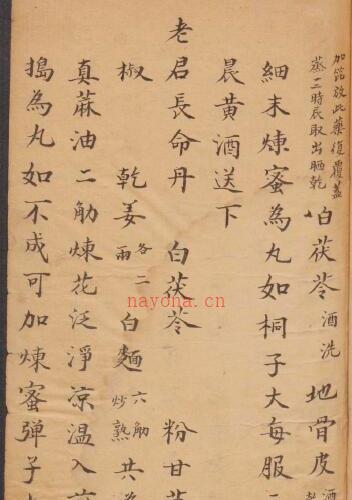 加放此藥復覆蓋
蒸二時辰取出晒乾
白茯苓 酒洗 地骨皮 酒
細末煉蜜為丸如桐子大每服
晨黃酒送下
老君長命丹 白茯苓 粉甘
椒 乾姜 各二兩 白麵 六觔炒熟 共
真蔴油二觔煉花泛淨涼溫入
搗為丸如不成可加煉蜜彈子
nayona.cn